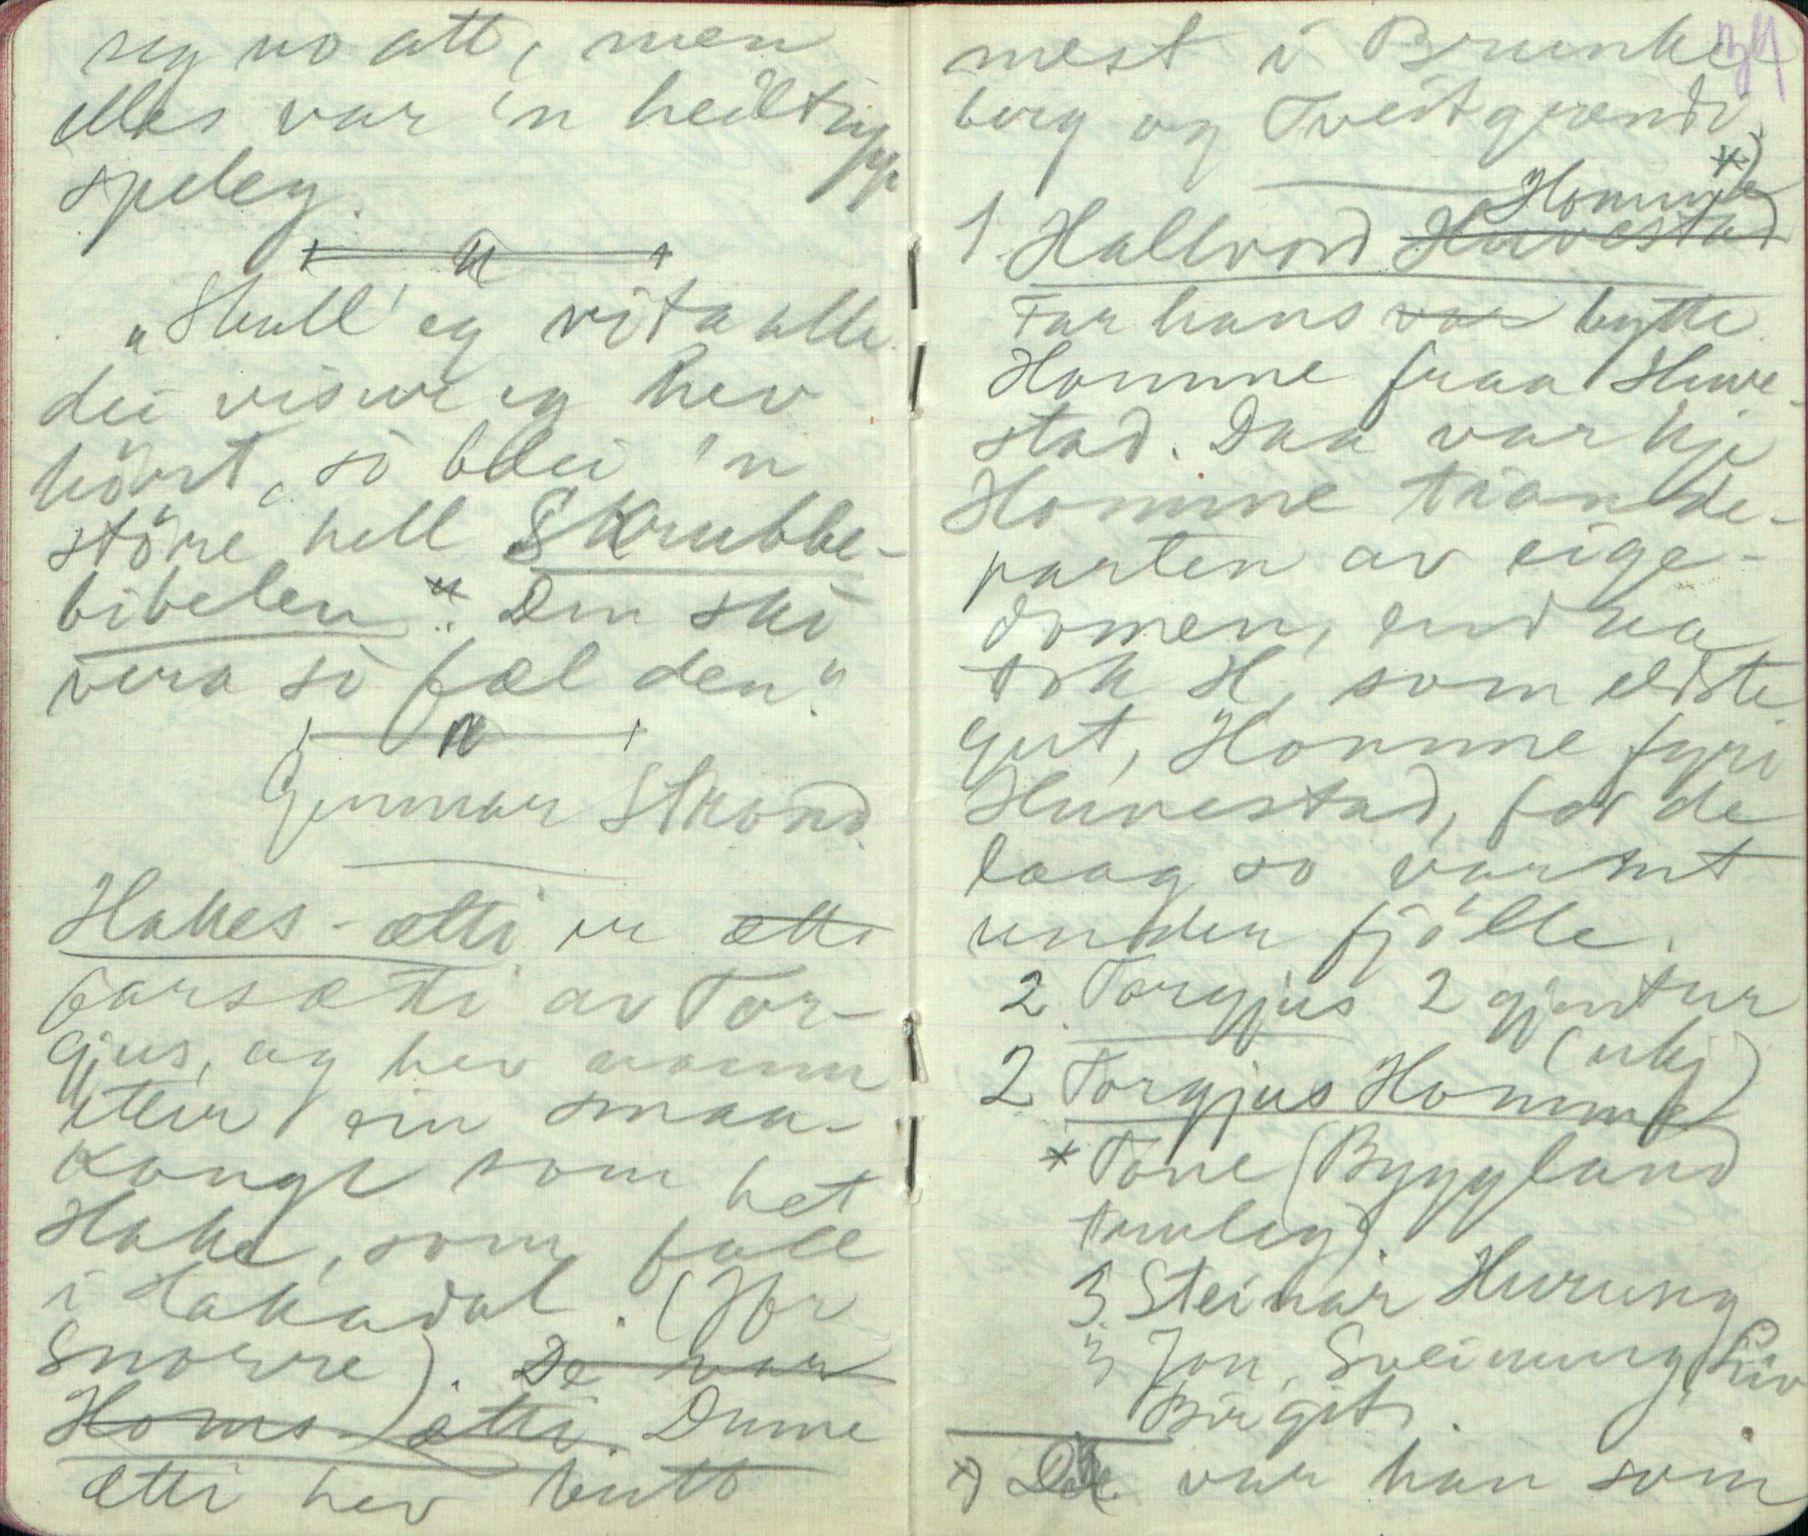 seg no att, men
elles var 'n heilt
speleg.
"Skull' eg vita alle
dei visur eg hev
höyrt, so blei 'n
störe hell Skrubbe-
bibelen". Den sko
vera so fæl den."
Gunnar Strond
Hakes-ætti er ætti
farsætti av Tor-
gjus, og hev namn
etter ein smaa-
konge som het
Hake, som fall
i Hakadal. (Jfr
Snorre). De var
Homs-ætti. Denne
ætti hev butt
34
mest i Brunke
berg og Tveitgrendi
1. Hallvord Huvestad Homme *)
Far hans var bytte
Homme fraa Huve-
stad. Daa var kje
Homme tiande-
parten av eige-
domen, endaa
tok H, som eldste
gut, Homme fyri
Huvestad, for de
laag so varmt
under fjölle.
2. Torgjus 2 gjentur
2 Torgjus Homme
* Tone (Byggland
truleg).
3. Steinar Hurung
3 Jon, Sveinung, Liv
Birgit.
*) De var han som